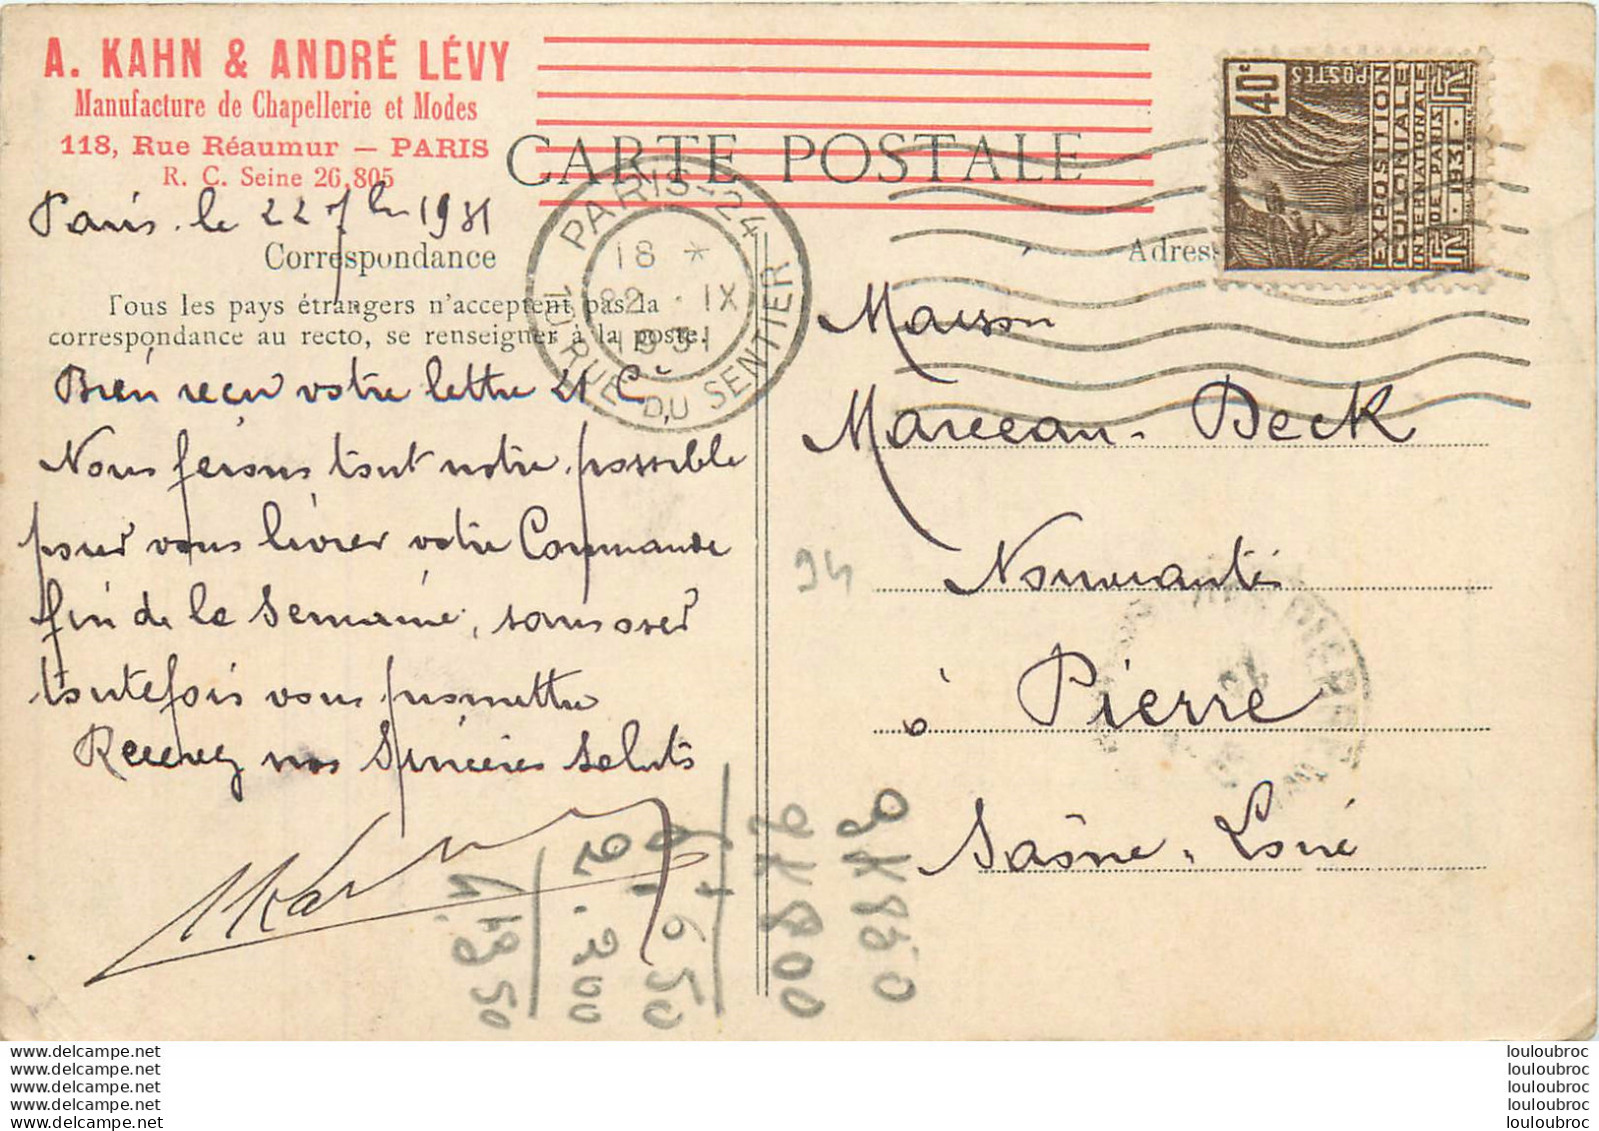 A. KAHN & ANDRÉ LÉVY
Manufacture de Chapellerie et Modes
118, Rue Réaumur — PARIS
R. C. Seine 26.805
CARTE POSTALE
Paris le 22 7bre 1931
Correspondance
Tous les pays étrangers n'acceptent pas la
correspondance au recto, se renseigner à la poste.
Bien reçu votre lettre 21 Ct
Nous ferons tout notre possible
pour vous livrer votre Commande
fin de la semaine, sans oser
toutefois vous promettre
Recevez nos sincères saluts
AKahn
PARIS-24
18 *
22 · IX
1931
10, RUE DU SENTIER
40c
POSTES
EXPOSITION
COLONIALE
INTERNATIONALE
DE PARIS
RF · 1931 · RF
Adresse
Maison
Marceau-Beck
Nouveautés
à Pierre
Saône-Loire
94
9K850
9K800
+ 650
2.200
4.1950
www.delcampe.net
www.delcampe.net
www.delcampe.net
www.delcampe.net
www.delcampe.net
louloubroc
louloubroc
louloubroc
louloubroc
louloubroc